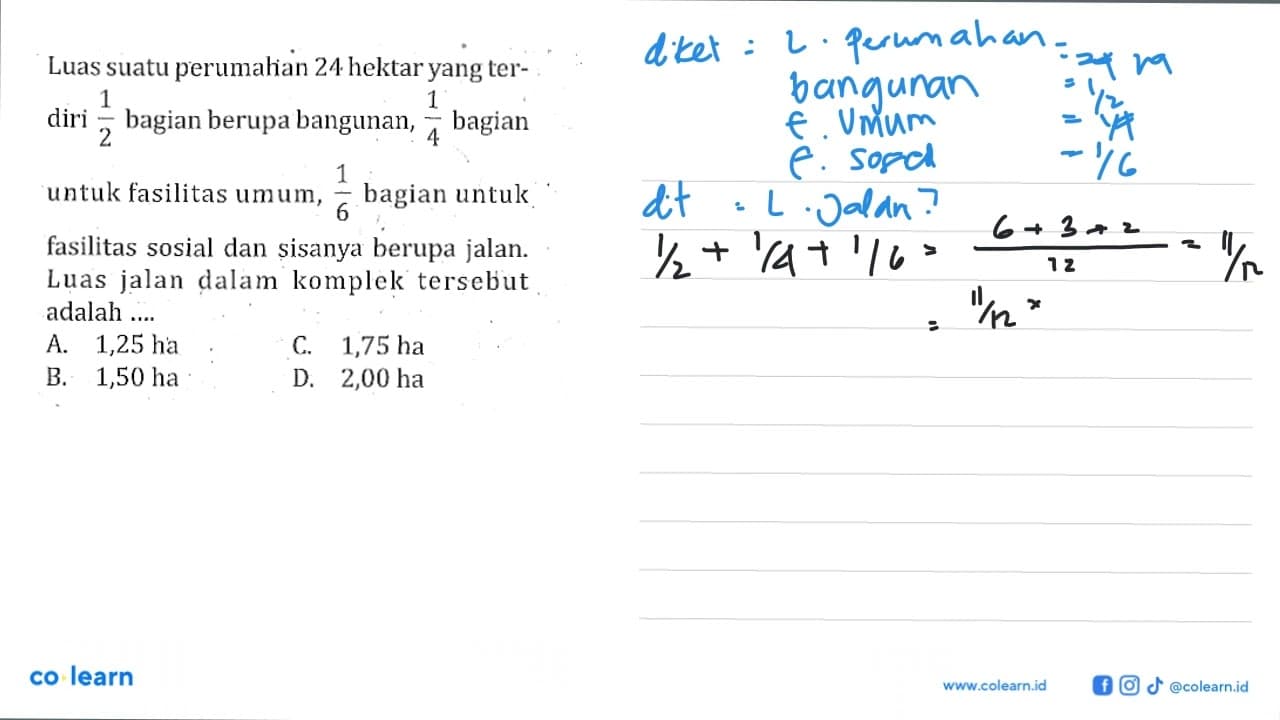 Luas suatu perumahan 24 hektar yang ter-
diri 1/2 bagian berupa bangunan, 1/4 bagian
untuk fasilitas umum, 1/6 bagian untuk
fasilitas sosial dan sisanya berupa jalan.
Luas jalan dalam komplek tersebut
adalah ....
A. 1,25 ha C. 1,75 ha
B. 1,50 ha D. 2,00 ha
diket : L. perumahan = 24 ha
bangunan = 1/2
f. Umum = 1/4
f. sosial = 1/6
dit : L. Jalan?
1/2 + 1/4 + 1/6 = (6 + 3 + 2)/12 = 11/12
= 11/12 ×
co learn
www.colearn.id @colearn.id